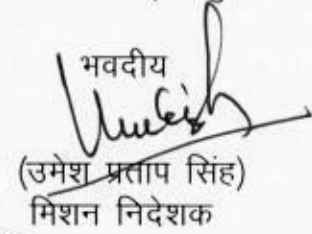 भवदीय
Umesh
(उमेश प्रताप सिंह)
मिशन निदेशक